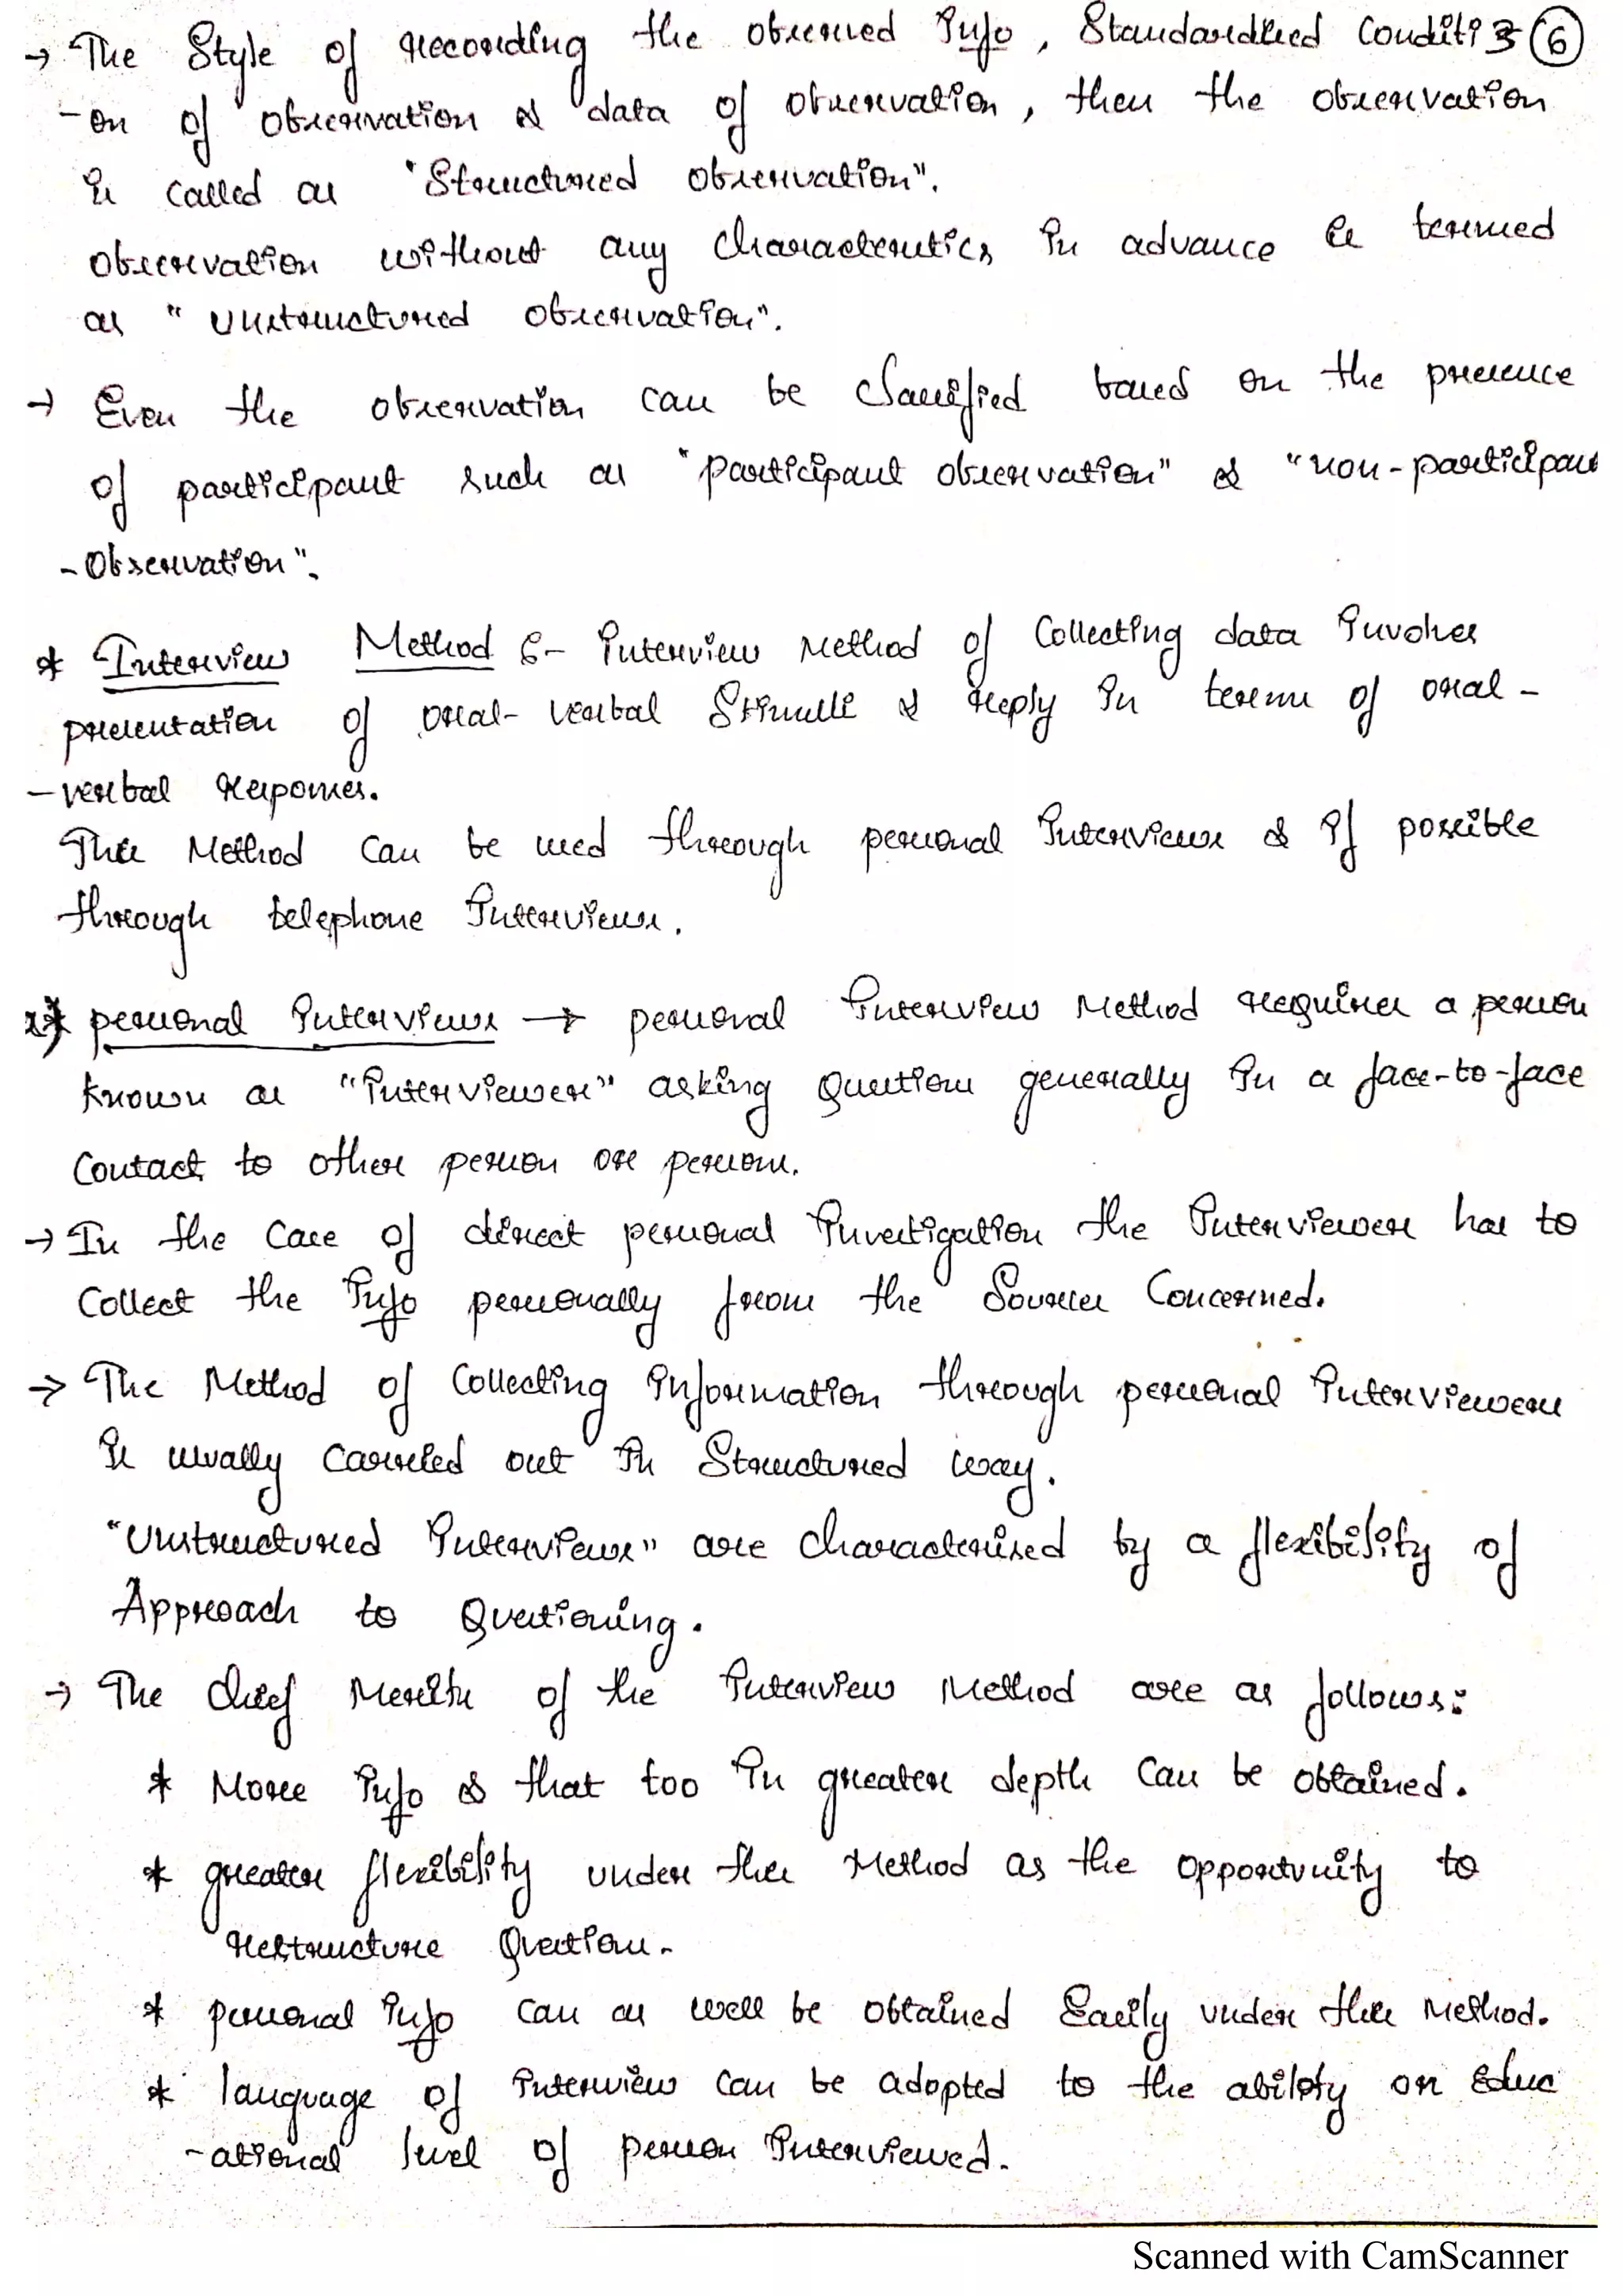 → The Style of recording the observed Info, Standardized Conditi 3 6
-on of observation & data of observation, then the observation
is called as "Structured observation".
observation without any characteristics in advance is termed
as "unstructured observation".
→ Even the observation can be classified based on the presence
of participant such as "participant observation" & "non-participant
-Observation".
* Interview Method :- Interview Method of Collecting data Involves
presentation of oral-verbal Stimuli & reply in terms of oral-
-verbal responses.
This Method can be used through personal Interviews & if possible
through telephone Interviews.
* personal Interviews → personal Interview Method requires a person
known as "Interviewer" asking questions generally in a face-to-face
Contact to other person or persons.
→ In the Case of direct personal Investigation the Interviewer has to
Collect the Info personally from the Sources Concerned.
→ The Method of Collecting Information through personal Interviewers
is usually carried out in Structured way.
"Unstructured Interviews" are characterised by a flexibility of
Approach to Questioning.
→ The chief Merits of the Interview Method are as follows:
* More Info & that too in greater depth Can be obtained.
* greater flexibility under this Method as the opportunity to
restructure Questions.
* personal Info can as well be obtained Easily under this Method.
* language of Interview can be adopted to the ability or Educ
-ational level of person Interviewed.
Scanned with CamScanner